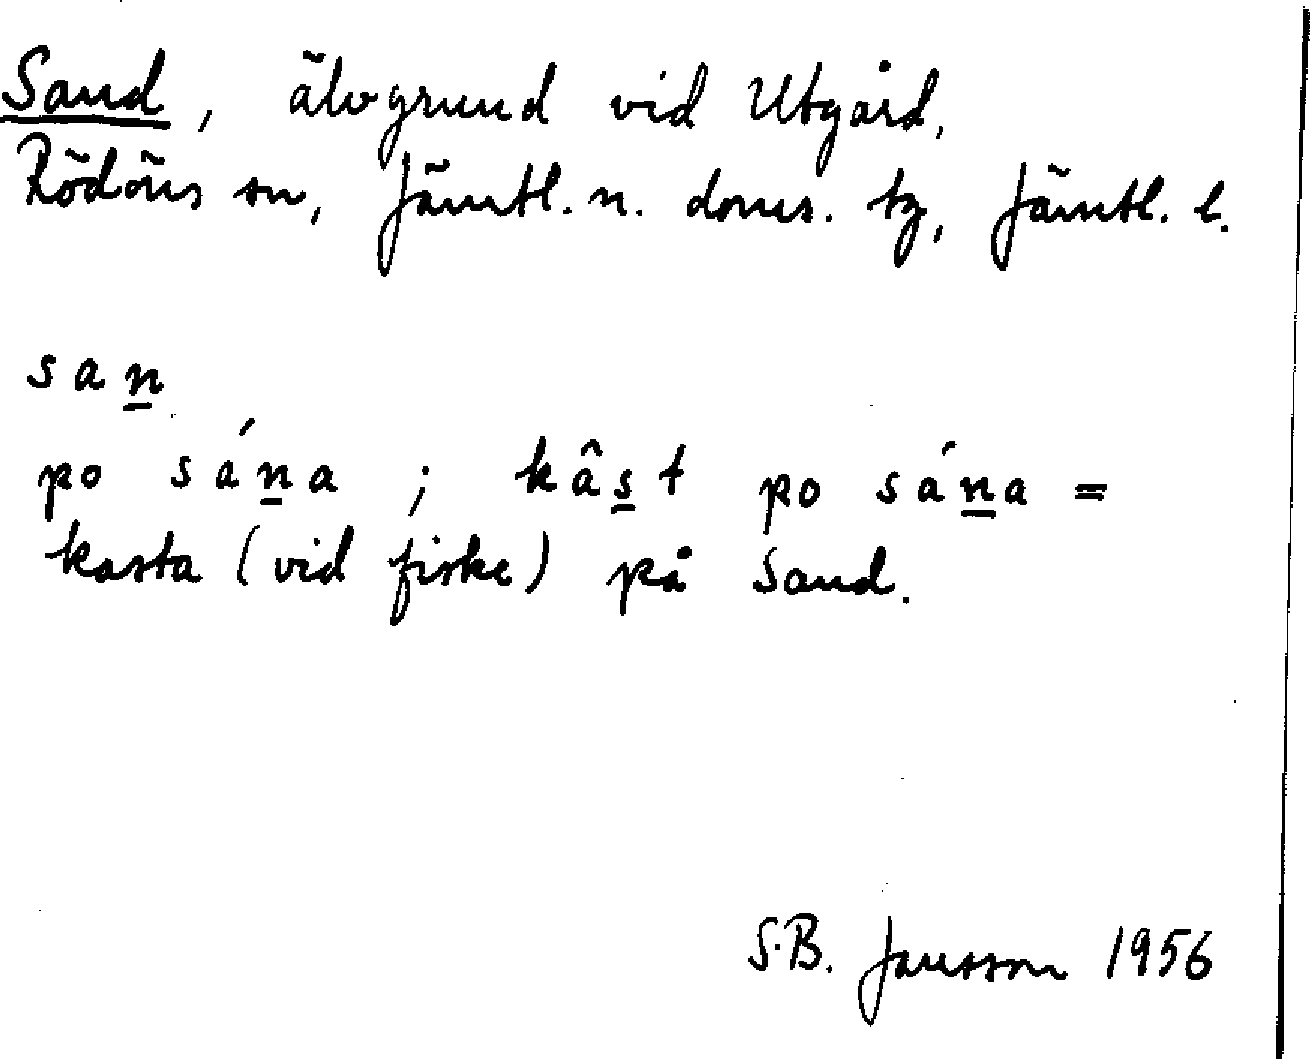 Sand, älvgrund vid Utgård,
Rödöns sn, Jämtl. n. doms. tg, Jämtl. l.
san̲
po sán̲a ; kâs̲t po sán̲a =
kasta (vid fiske) på Sand.
S.B. Jansson 1956